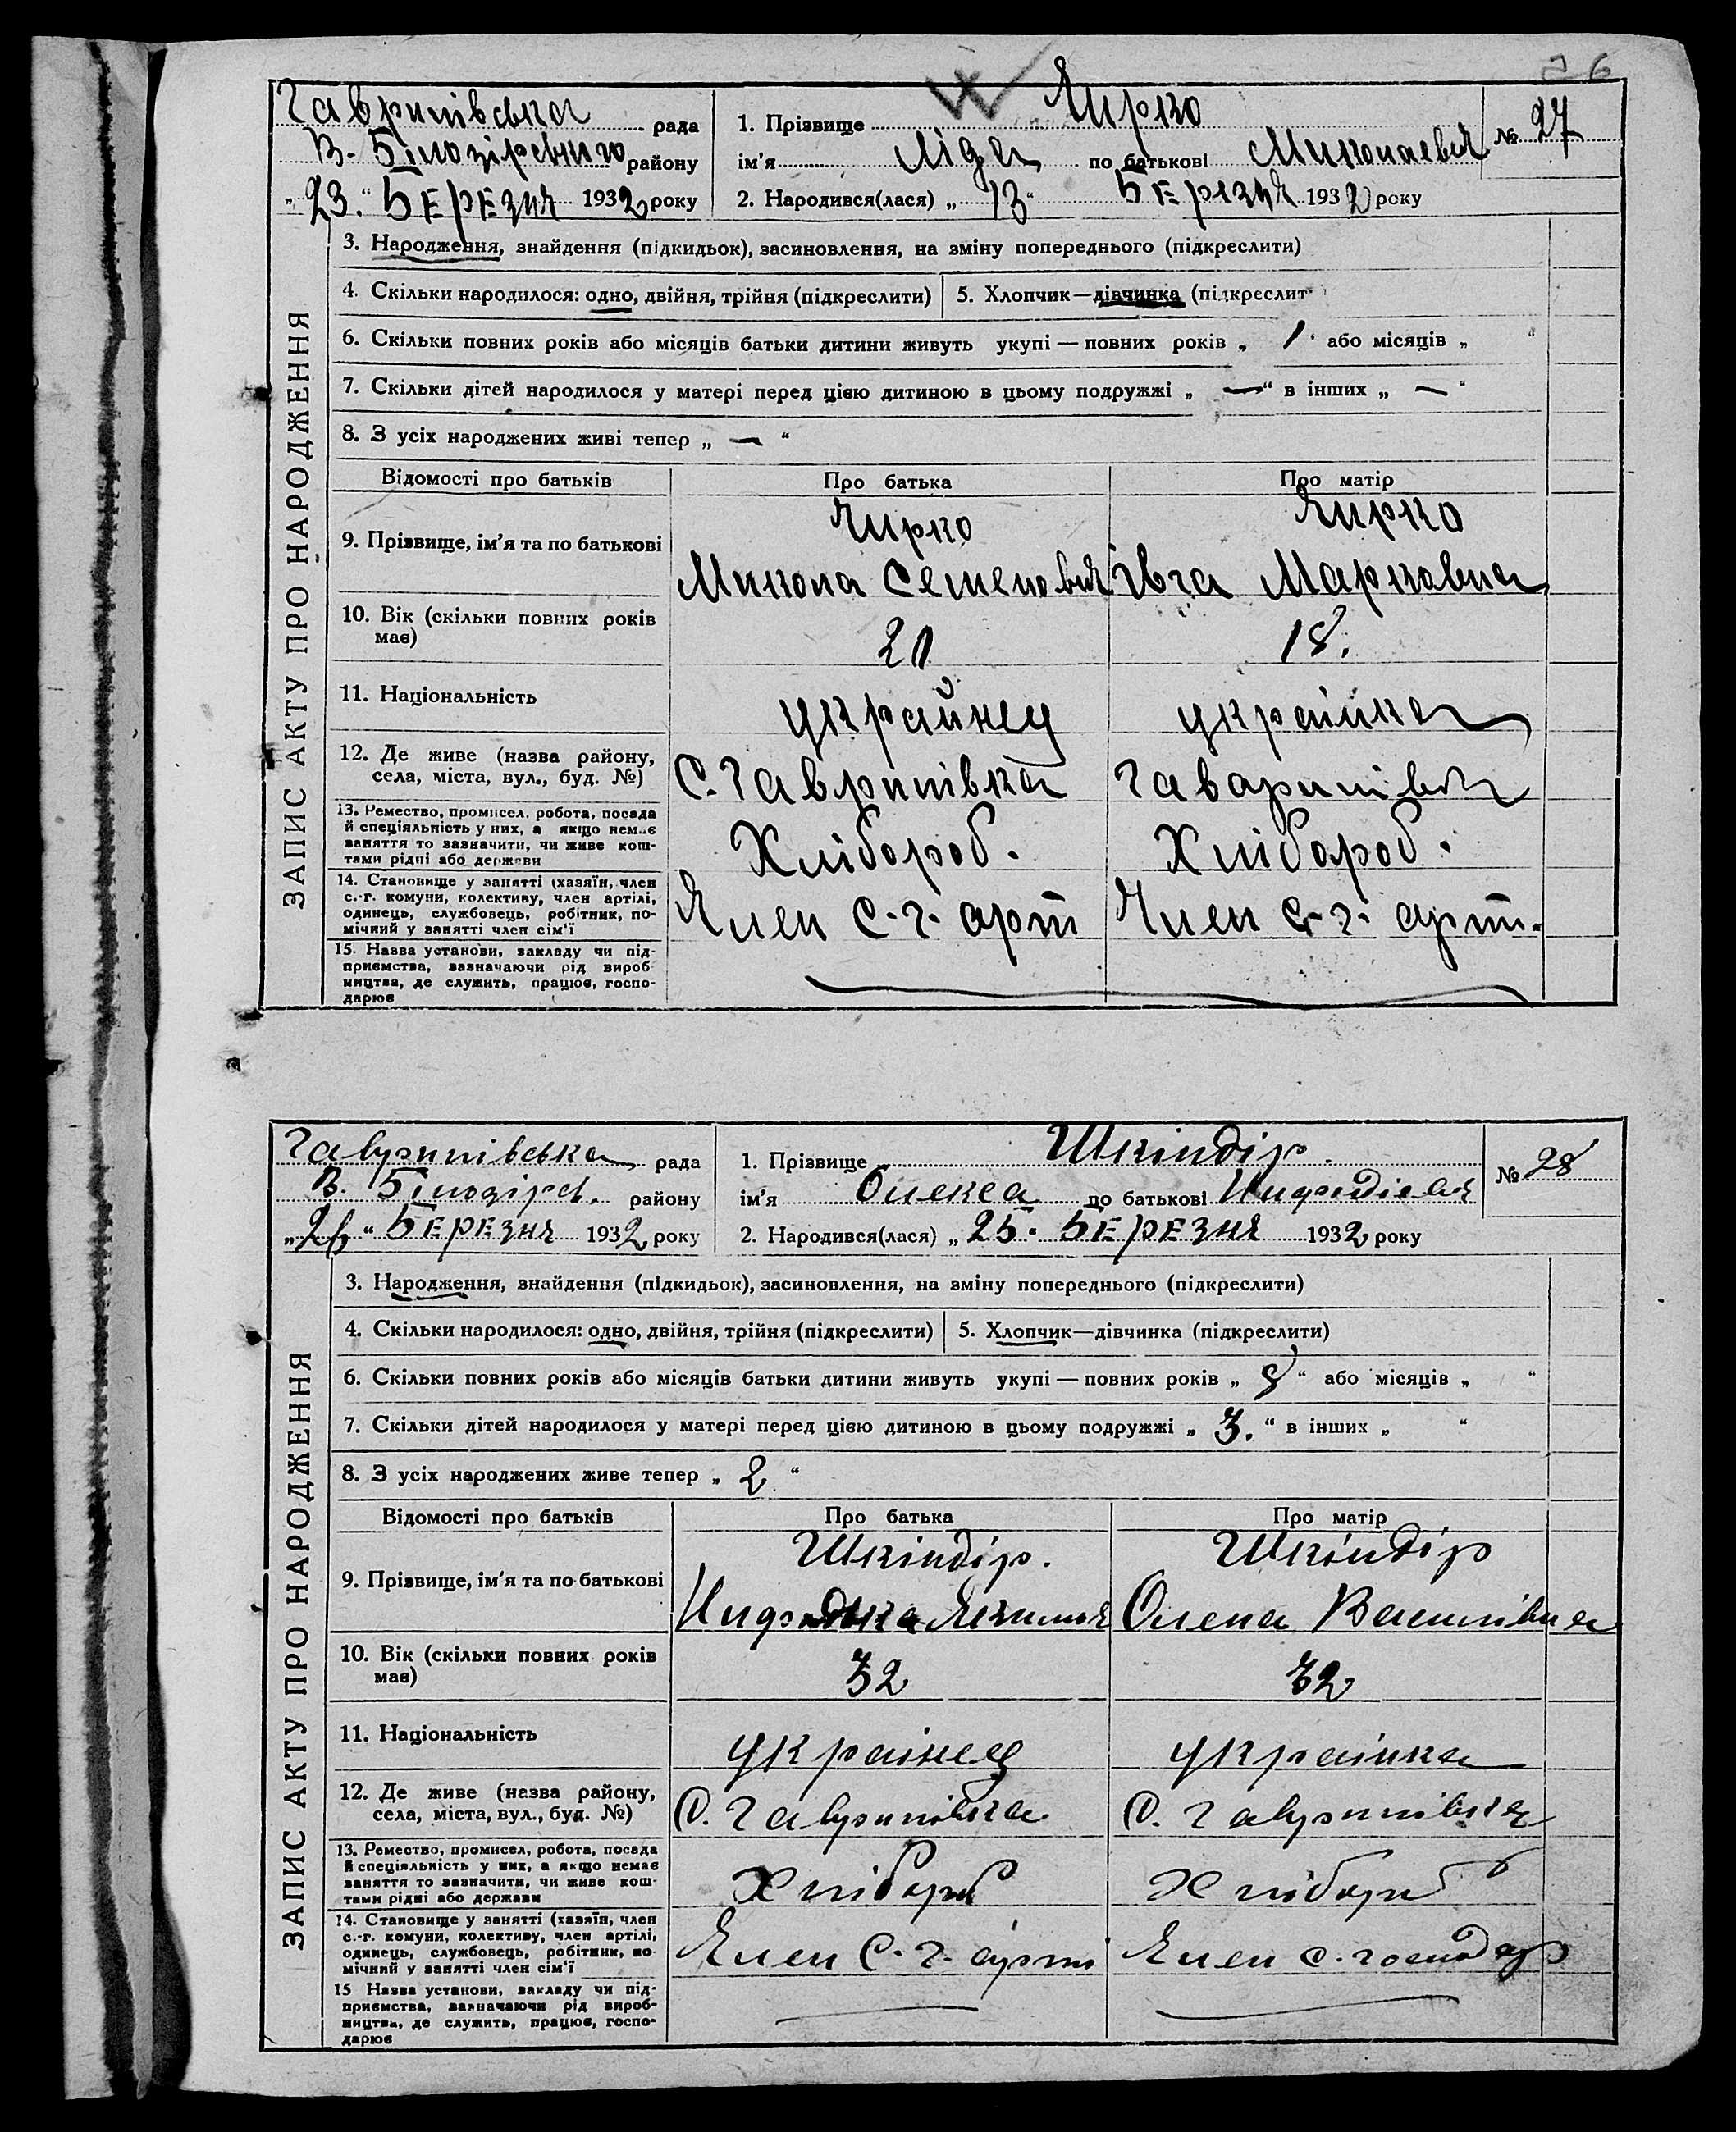 26
Гаврилівська рада
В. Білозірського району
„23.“ Березня 1932 року
1. Прізвище Чирко
ім’я Ліда по батькові Миколаевня
№ 27
2. Народився(лася) „13“ Березня 1932 року
ЗАПИС АКТУ ПРО НАРОДЖЕННЯ
3. Народження, знайдення (підкидьок), засиновлення, на зміну попереднього (підкреслити)
4. Скільки народилося: одно, двійня, трійня (підкреслити) 5. Хлопчик—дівчинка (підкреслит
6. Скільки повних років або місяців батьки дитини живуть укупі — повних років „ 1 “ або місяців „ “
7. Скільки дітей народилося у матері перед цією дитиною в цьому подружжі „ — “ в інших „ — “
8. З усіх народжених живі тепер „ — “
Відомості про батьків Про батька Про матір
9. Прізвище, ім’я та по батькові
Чирко Чирко
Микола Семенович Івга Марковна
10. Вік (скільки повних років має) 21 18.
11. Національність украйнец украінка
12. Де живе (назва району,
села, міста, вул., буд. №) С. Гаврилівка Гаварилівка
13. Ремество, промисел, робота, посада
й спеціяльність у них, а якщо немає
заняття то зазначити, чи живе кош-
тами рідні або держави
Хлібороб. Хлібороб.
14. Становище у занятті (хазяїн, член
с.-г. комуни, колективу, член артілі,
одинець, службовець, робітник, по-
мічний у занятті член сім’ї
Член С.-г. арт Член С-г. арт.
15. Назва установи, закладу чи під-
приємства, зазначаючи рід вироб-
ництва, де служить, працює, госпо-
дарює
Гаврилівська рада
В. Білозірсь. району
„26“ Березня 1932 року
1. Прізвище Шкіндір.
ім’я Олекса по батькові
№ 28
2. Народився(лася) „25. Березня 1932 року
ЗАПИС АКТУ ПРО НАРОДЖЕННЯ
3. Народження, знайдення (підкидьок), засиновлення, на зміну попереднього (підкреслити)
4. Скільки народилося: одно, двійня, трійня (підкреслити) 5. Хлопчик—дівчинка (підкреслити)
6. Скільки повних років або місяців батьки дитини живуть укупі — повних років „ “ або місяців „ “
7. Скільки дітей народилося у матері перед цією дитиною в цьому подружжі „ 3. “ в інших „ “
8. З усіх народжених живе тепер „ 2 “
Відомості про батьків Про батька Про матір
9. Прізвище, ім’я та по батькові
Шкіндір. Шкіндір
Олена Василівна
10. Вік (скільки повних років має) 32 32
11. Національність украінец украінка
12. Де живе (назва району,
села, міста, вул., буд. №) С. Гаврилівка С. Гаврилівка
13. Ремество, промисел, робота, посада
й спеціяльність у них, а якщо немає
заняття то зазначити, чи живе кош-
тами рідні або держави
Хлібороб Хлібороб
14. Становище у занятті (хазяїн, член
с.-г. комуни, колективу, член артілі,
одинець, службовець, робітник, по-
мічний у занятті член сім’ї
Член С.-г. арт Член С. господар
15 Назва установи, закладу чи під-
приємства, зазначаючи рід вироб-
ництва, де служить, працює, госпо-
дарює